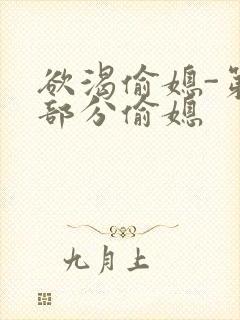 欲渴偷媳-第
部分偷媳
九月上